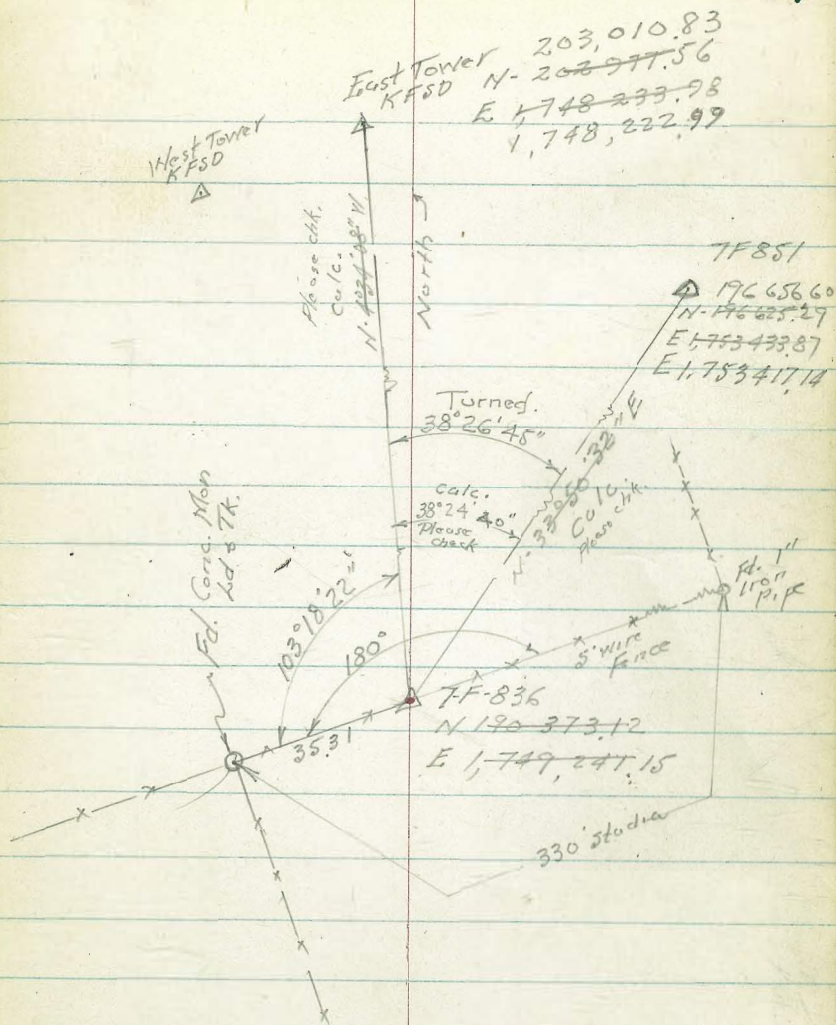 203,010.83
East Tower
KFSD
N- 202 977.56
E 1,748 233.98
1,748,222.99
West Tower
KFSD
Please chk.
Calc.
N. 4°34'08" W
North
7F851
196 656 60
N-196 625.29
E 1,753 433.87
E 1,753417.14
Turned.
38°26'45"
Calc.
38°24'40"
Please
check
N-33°50'32" E
Calc.
Please chk.
Fd. Conc. Mon
Ld & Tk.
Fd. 1"
Iron
Pipe
103°18'22"
180°
5' Wire
Fence
7-F-836
N 190 373.12
E 1,749,241.15
35.31
330' Stadia